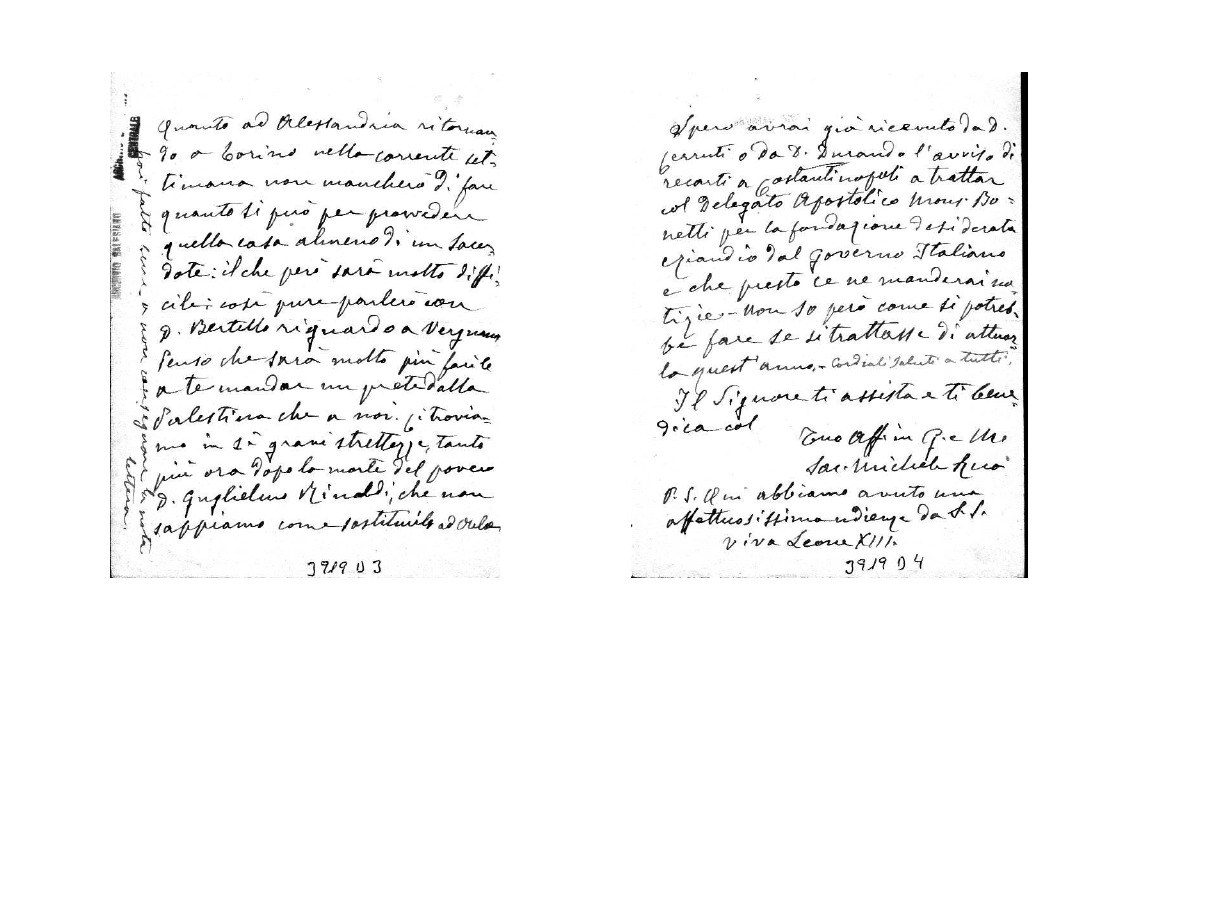 Quanto ad Alessandria ritornan-
do a Torino nella corrente set-
timana non mancherò di fare
quanto si può per provvedere
quella casa almeno di un sacer-
dote: il che però sarà molto diffi-
cile: così pure parlerò con
D. Bertello riguardo a Vergnano
Penso che sarà molto più facile
a te mandar un prete dalla
Palestina che a noi. Ci trovia-
mo in sì gravi strettezze, tanto
più ora dopo la morte del povero
D. Guglielmo Rinaldi, che non
sappiamo come sostituirlo ad
hai fatto bene a non consegnare la nota
lettera.
ARCHIVIO SALESIANO
CENTRALE
3919 D 3
Spero avrai già ricevuto da D.
Cerruti o da D. Durando l'avviso di
recarti a Costantinopoli a trattar
col Delegato Apostolico Mons. Bo=
netti per la fondazione desiderata
eziandio dal Governo Italiano
e che presto ce ne manderai no-
tizie - Non so però come si potreb-
be fare se si trattasse di attuar-
la quest'anno. - Cordiali saluti a tutti.
Il Signore ti assista e ti bene-
dica col
Tuo Aff.mo in G. e M.
Sac. Michele Rua
P.S. Qui abbiamo avuto una
affettuosissima udienza da S.S.
Viva Leone XIII.
3919 D 4